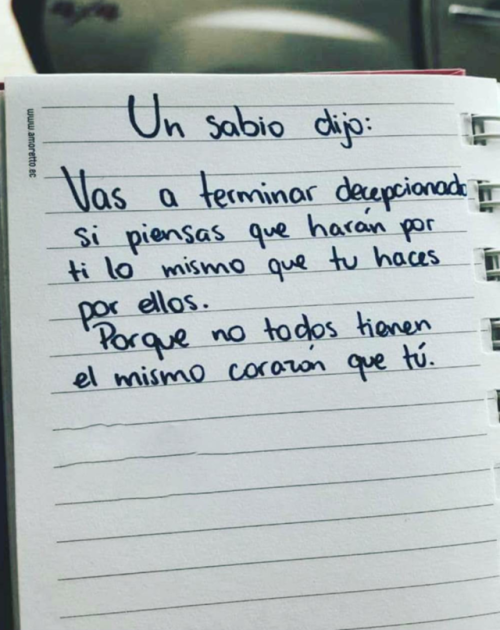 www.amoretto.ec
Un sabio dijo:
Vas a terminar decepcionado
si piensas que harán por
ti lo mismo que tu haces
por ellos.
Porque no todos tienen
el mismo corazón que tú.